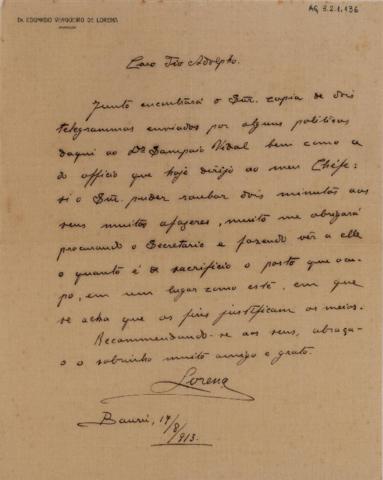 AG 3.2.1.136
Dr. EDUARDO VERGUEIRO DE LORENA
Caro Tio Adolpho.
Junto encontrará o Snr. copia de dois
telegrammas enviados por alguns politicos
daqui ao Dr. Sampaio Vidal bem como a
do officio que hoje dirijo ao meu Chefe:
si o Snr. puder roubar dois minutos aos
seus muitos afazeres, muito me obrigará
procurando o Secretario e fazendo vêr a elle
o quanto é de sacrificio o posto que occu-
po, em um lugar como este, em que
se acha que os fins justificam os meios.
Recommendando-se aos seus, abraça-
o o sobrinho muito amigo e grato.
Lorena
Bauru, 14/8/913.